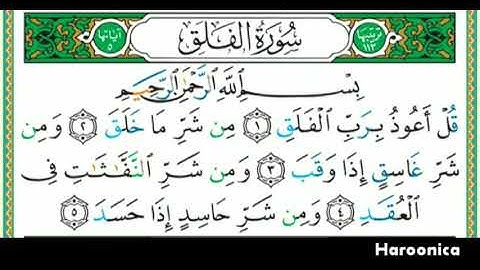 ترتيبها ١١٣ سُورَةُ الْفَلَقِ آياتها ٥
بِسْمِ اللَّهِ الرَّحْمَٰنِ الرَّحِيمِ
قُلْ أَعُوذُ بِرَبِّ الْفَلَقِ ١ مِن شَرِّ مَا خَلَقَ ٢ وَمِن
شَرِّ غَاسِقٍ إِذَا وَقَبَ ٣ وَمِن شَرِّ النَّفَّاثَاتِ فِي
الْعُقَدِ ٤ وَمِن شَرِّ حَاسِدٍ إِذَا حَسَدَ ٥
Haroonica